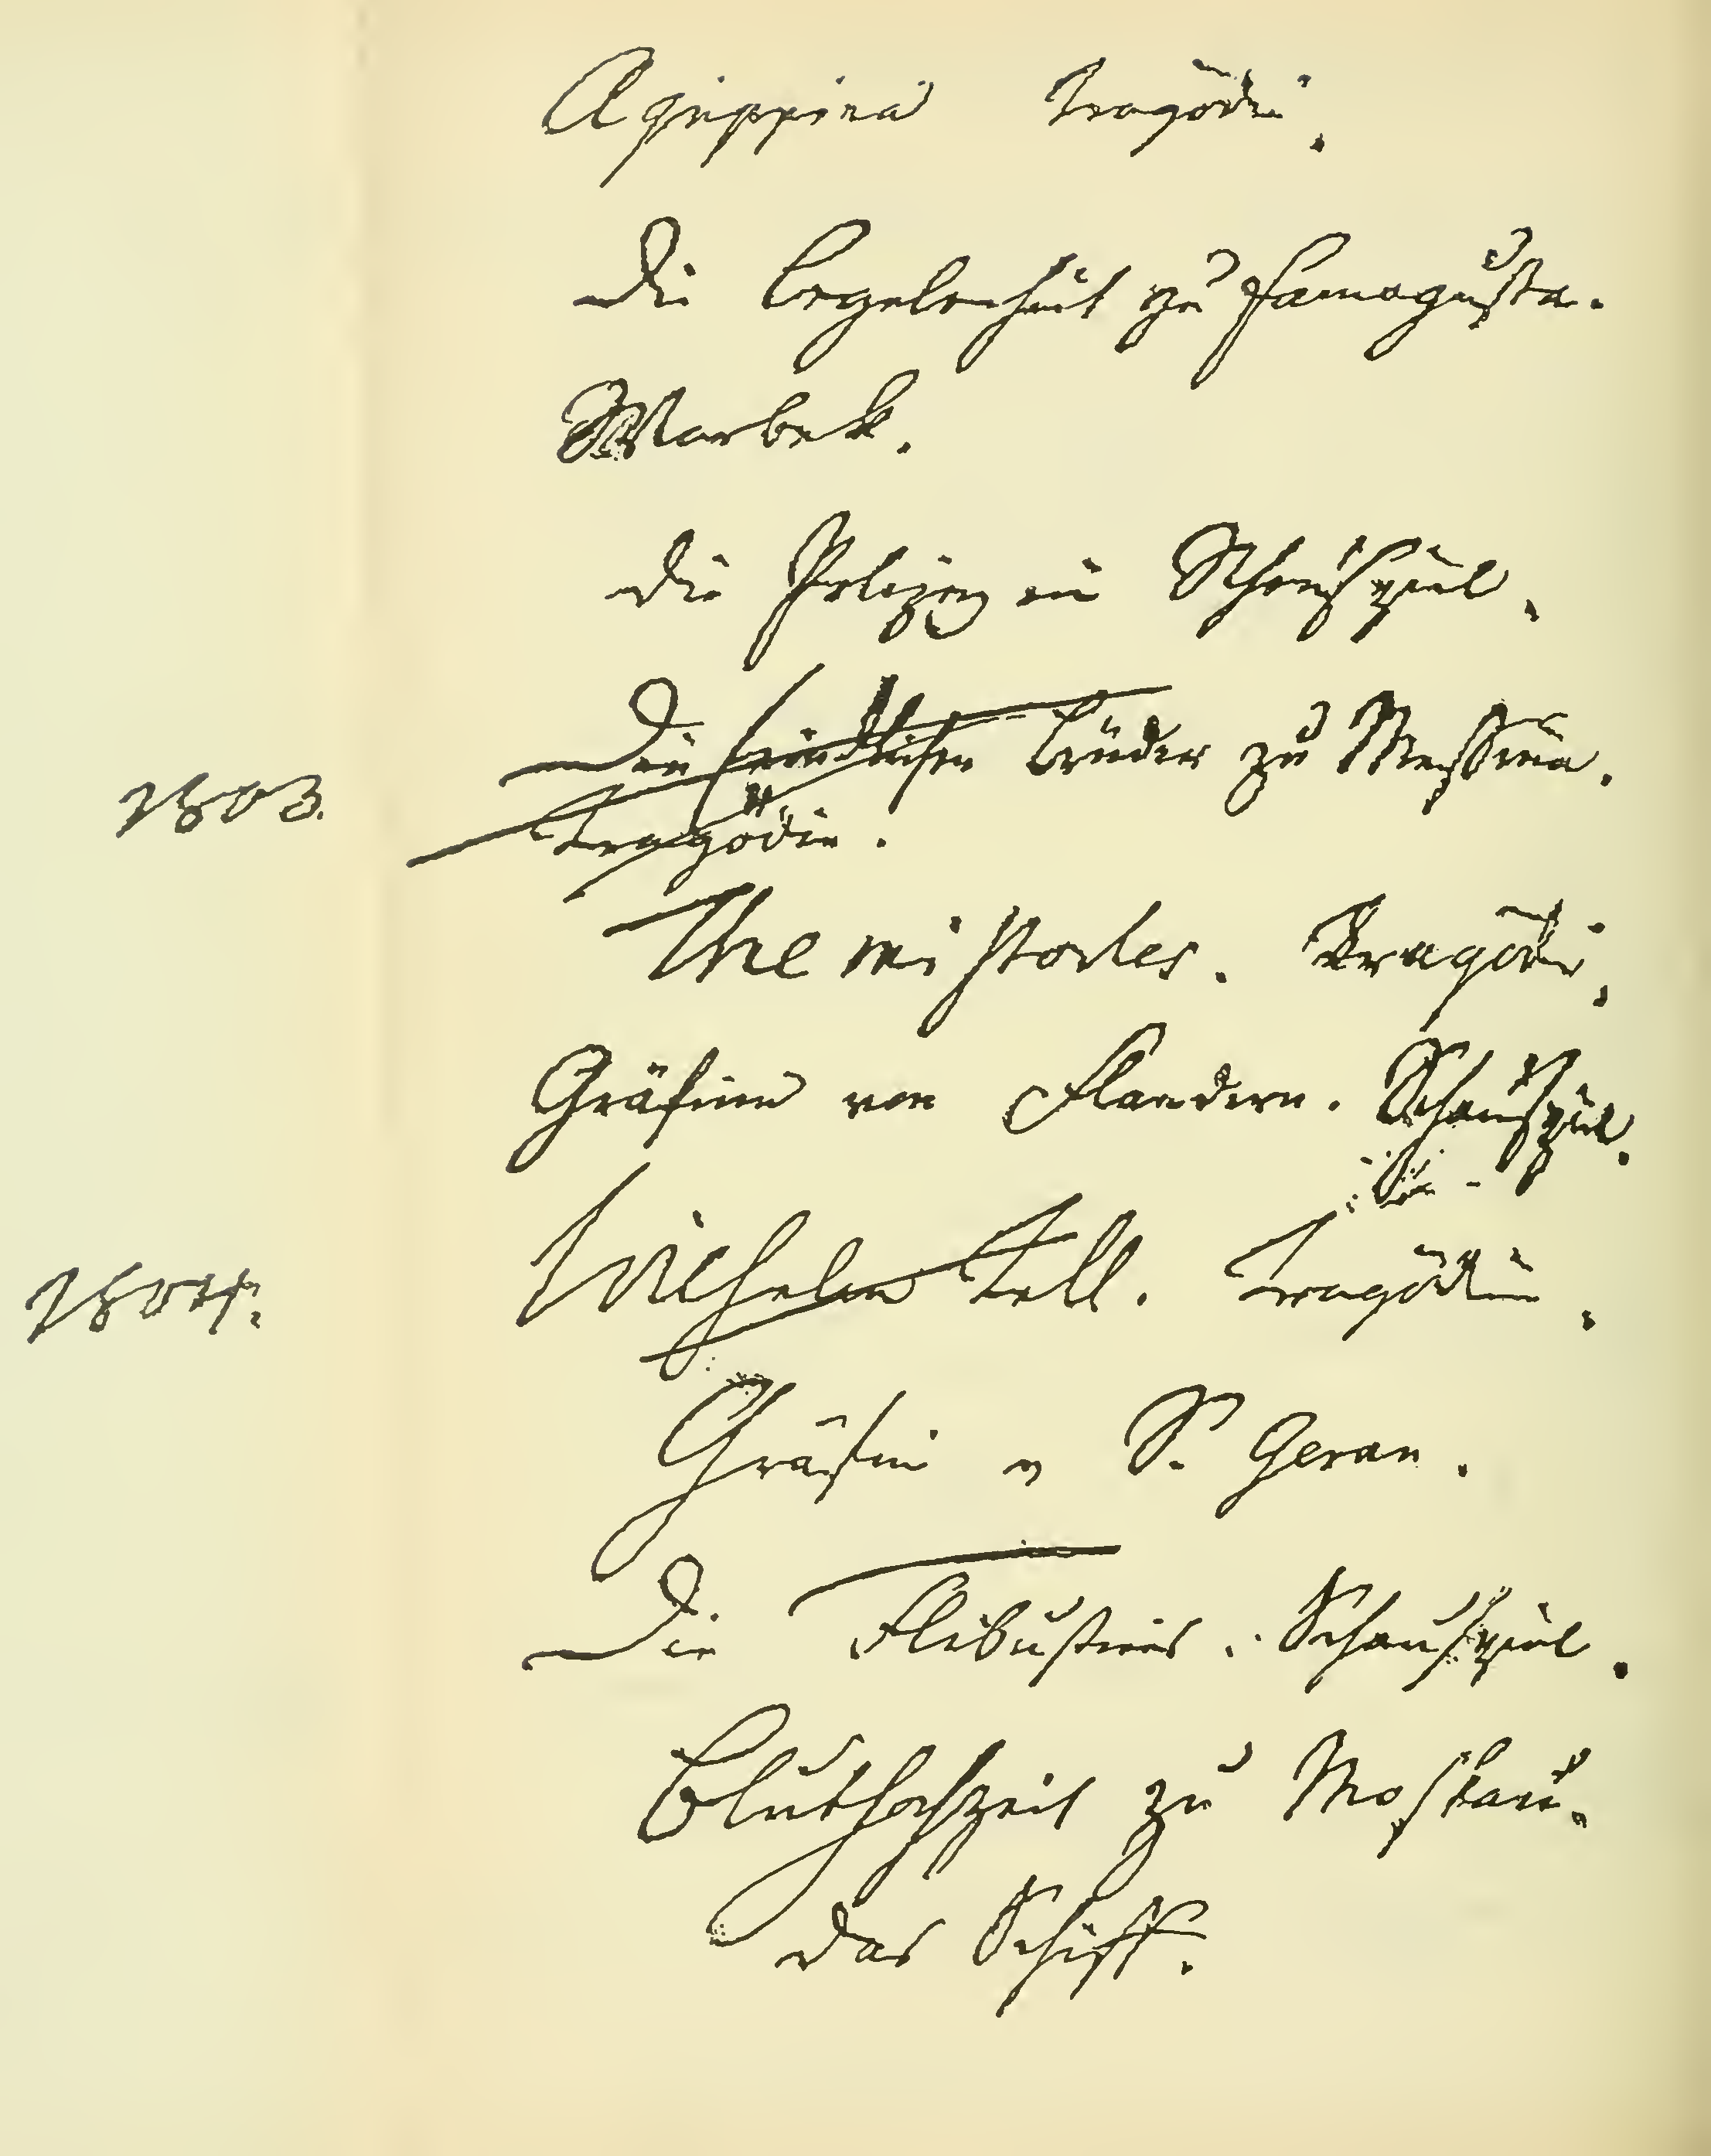 Agrippina Tragödie.
Die Begebenheit zu Famagusta.
Warbek.
Die Polizey ein Schauspiel.
Die feindlichen Brüder zu Messina.
1803.
Tragödie.
Themistocles. Tragödie.
Gräfinn von Flandern. Schauspiel.
1804.
Wilhelm Tell. Tragödie.
Gräfin v S. Geran.
Die Flibustiers. Schauspiel.
Bluthochzeit zu Moskau.
Das Schiff.